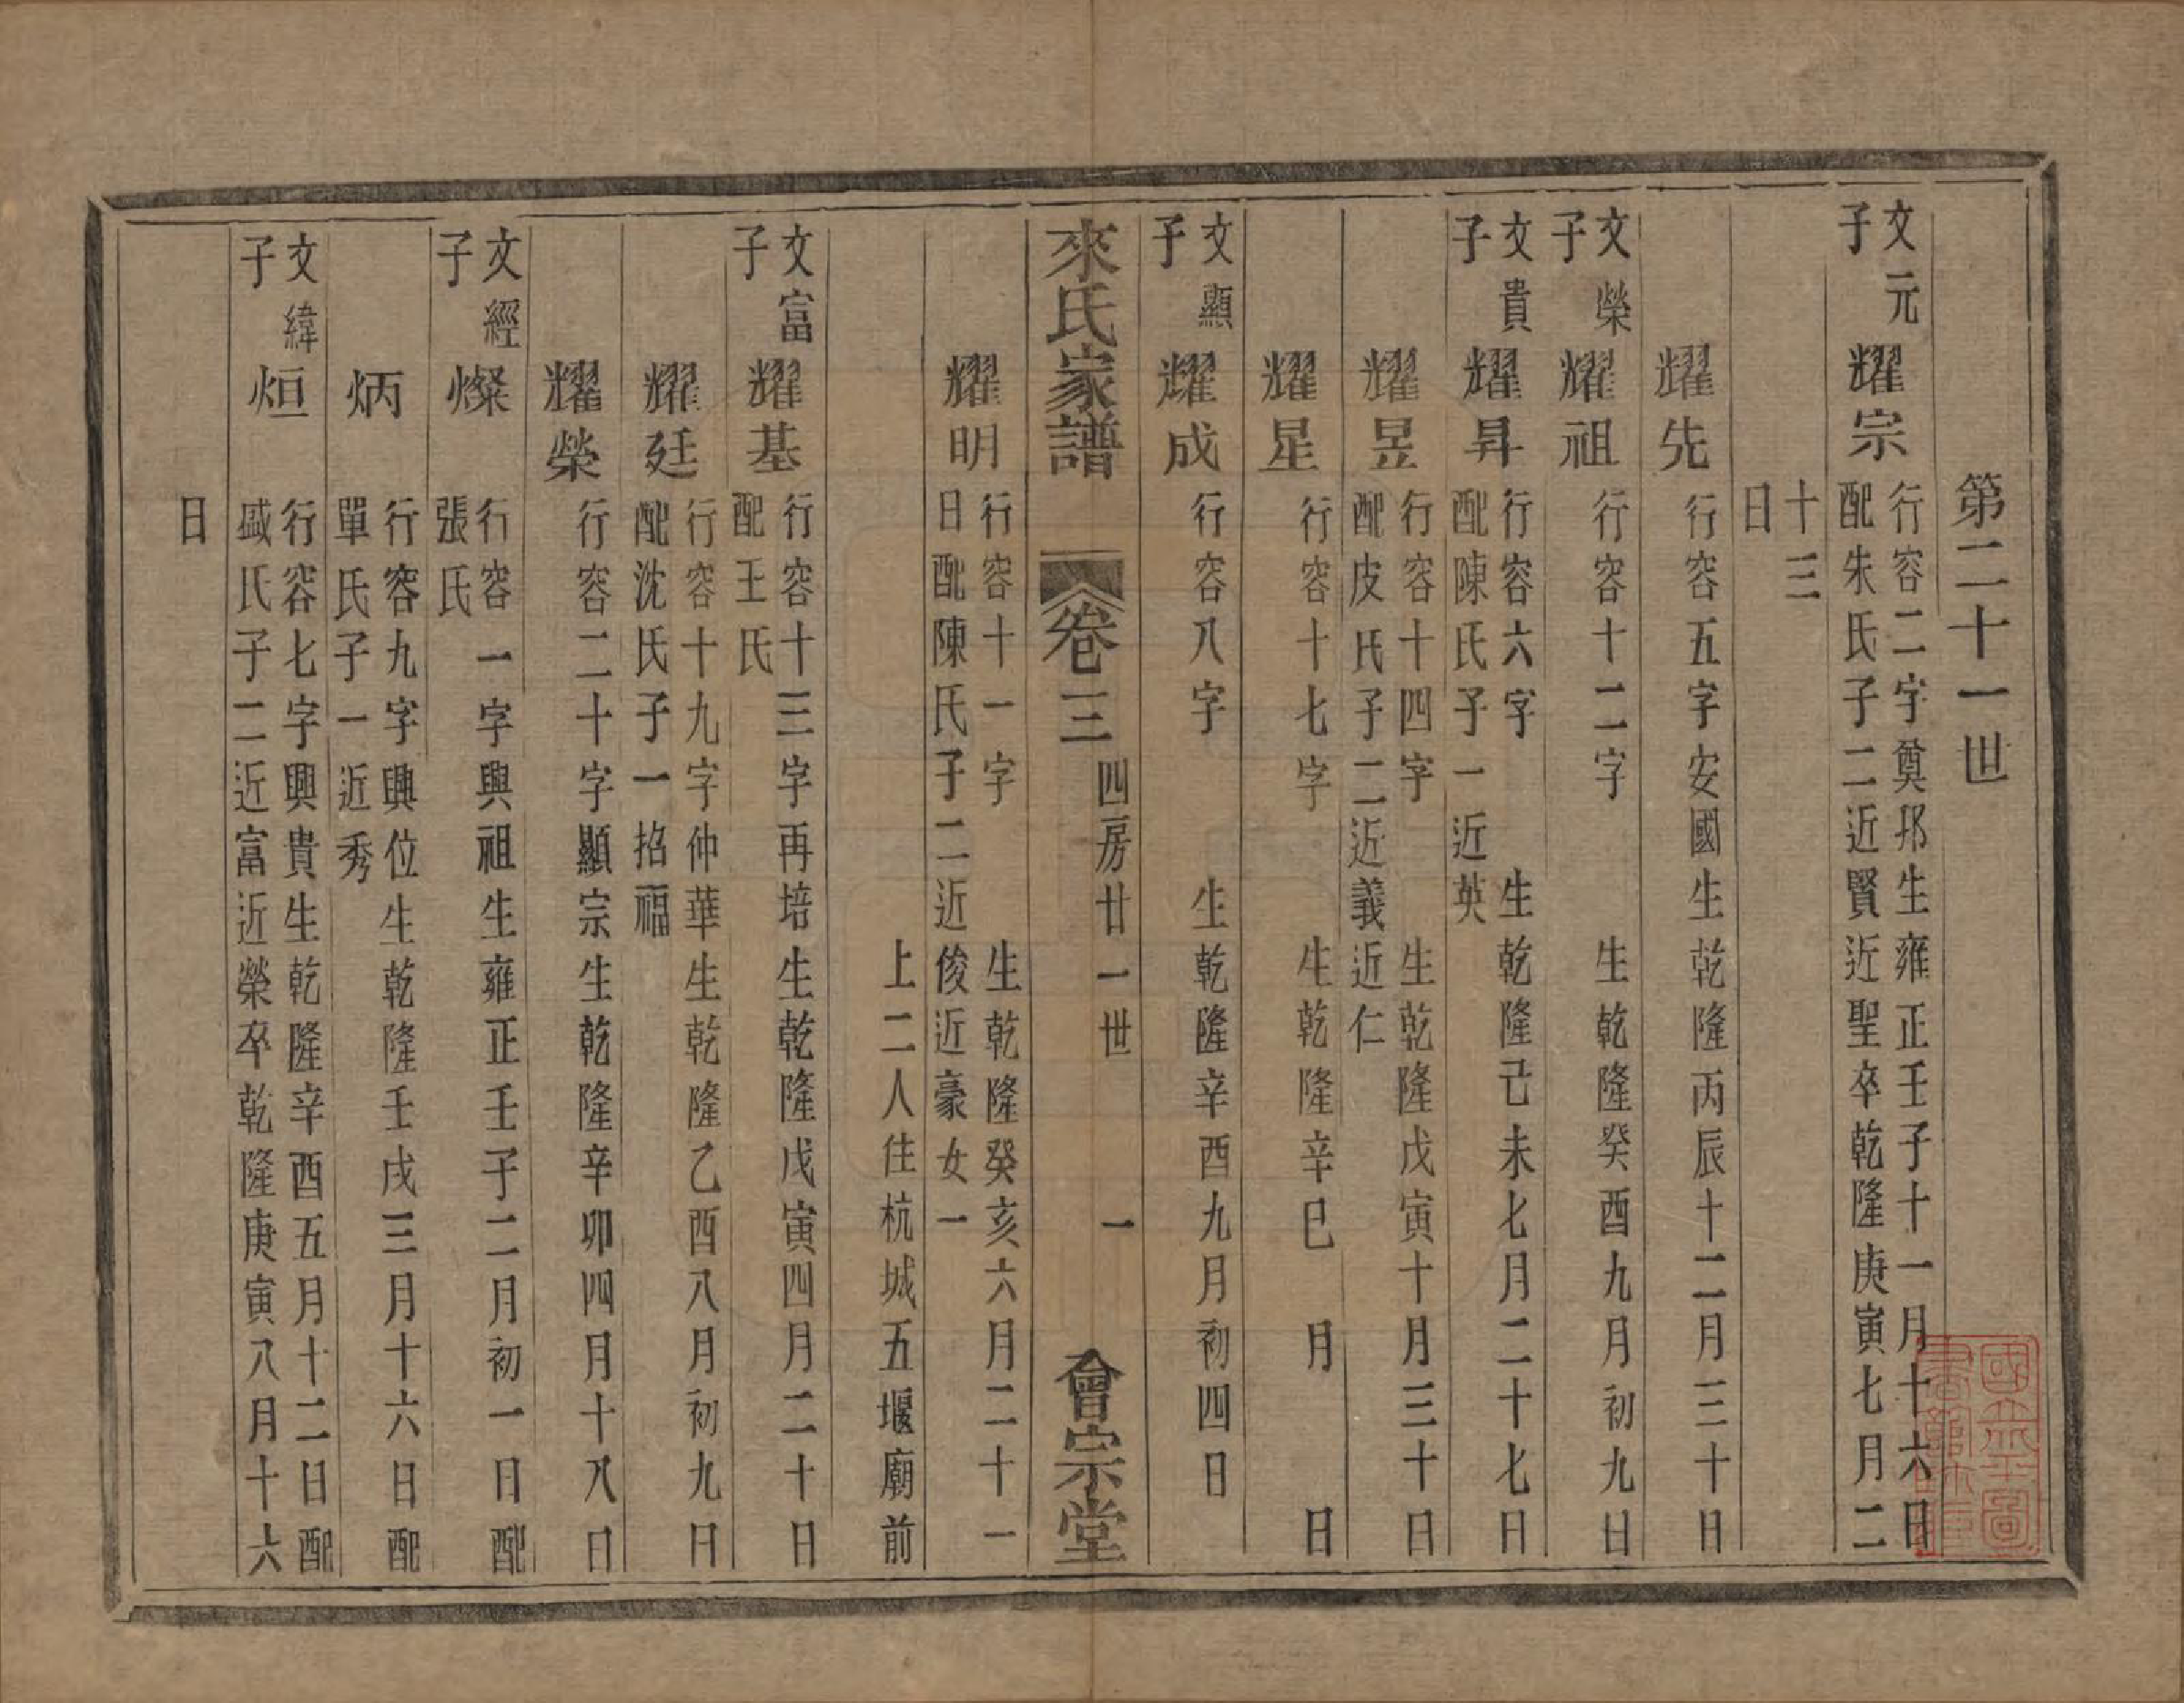 第二十一世
文元
子
耀宗
行容二字奠邦生雍正壬子十一月十六日
配朱氏子二近賢近聖卒乾隆庚寅七月二
十三
日
耀先
行容五字安國生乾隆丙辰十二月三十日
文榮
子
耀祖
行容十二字 生乾隆癸酉九月初九日
文貴
子
耀昇
行容六字 生乾隆己未七月二十七日
配陳氏子一近英
耀昱
行容十四字 生乾隆戊寅十月三十日
配皮氏子二近義近仁
耀星
行容十七字 生乾隆辛巳 月 日
文顯
子
耀成
行容八字 生乾隆辛酉九月初四日
來氏家譜 卷三 四房廿一世 一 會宗堂
耀明
行容十一字 生乾隆癸亥六月二十一
日配陳氏子二近俊近豪女一
上二人住杭城五堰廟前
文富
子
耀基
行容十三字再培生乾隆戊寅四月二十日
配王氏
耀廷
行容十九字仲華生乾隆乙酉八月初九日
配沈氏子一招福
耀榮
行容二十字顯宗生乾隆辛卯四月十八日
文經
子
燦
行容一字興祖生雍正壬子二月初一日配
張氏
炳
行容九字興位生乾隆壬戌三月十六日配
單氏子一近秀
文緯
子
烜
行容七字興貴生乾隆辛酉五月十二日配
戚氏子二近富近榮卒乾隆庚寅八月十六
日